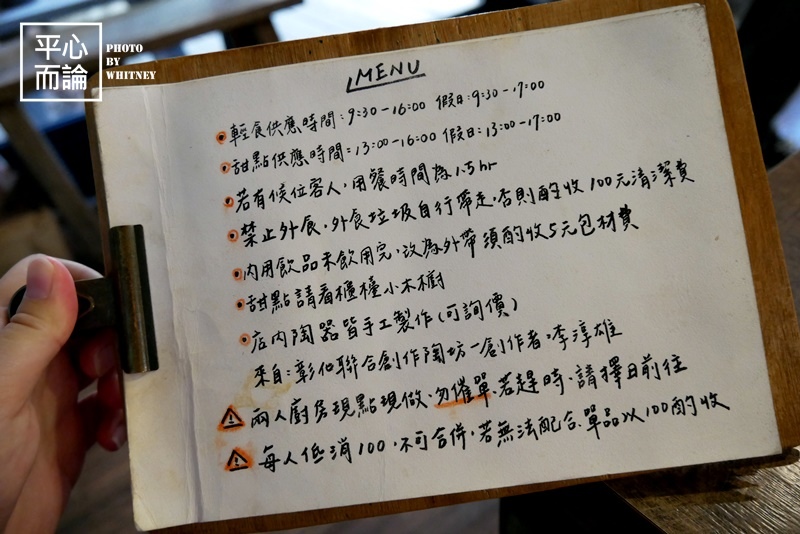 平心
而論
PHOTO
BY
WHITNEY
MENU
輕食供應時間:9:30-16:00 假日:9:30-17:00
甜點供應時間:13:00-16:00 假日:13:00-17:00
若有候位客人,用餐時間為1.5hr
禁止外食,外食垃圾自行帶走,否則酌收100元清潔費
內用飲品未飲用完,改為外帶須酌收5元包材費
甜點請看櫃檯小木樹
店內陶器皆手工製作(可詢價)
來自:彰化聯合創作陶坊-創作者:李淳雄
兩人廚房現點現做,勿催單,若趕時,請擇日前往
每人低消100,不可合併,若無法配合,單品以100酌收